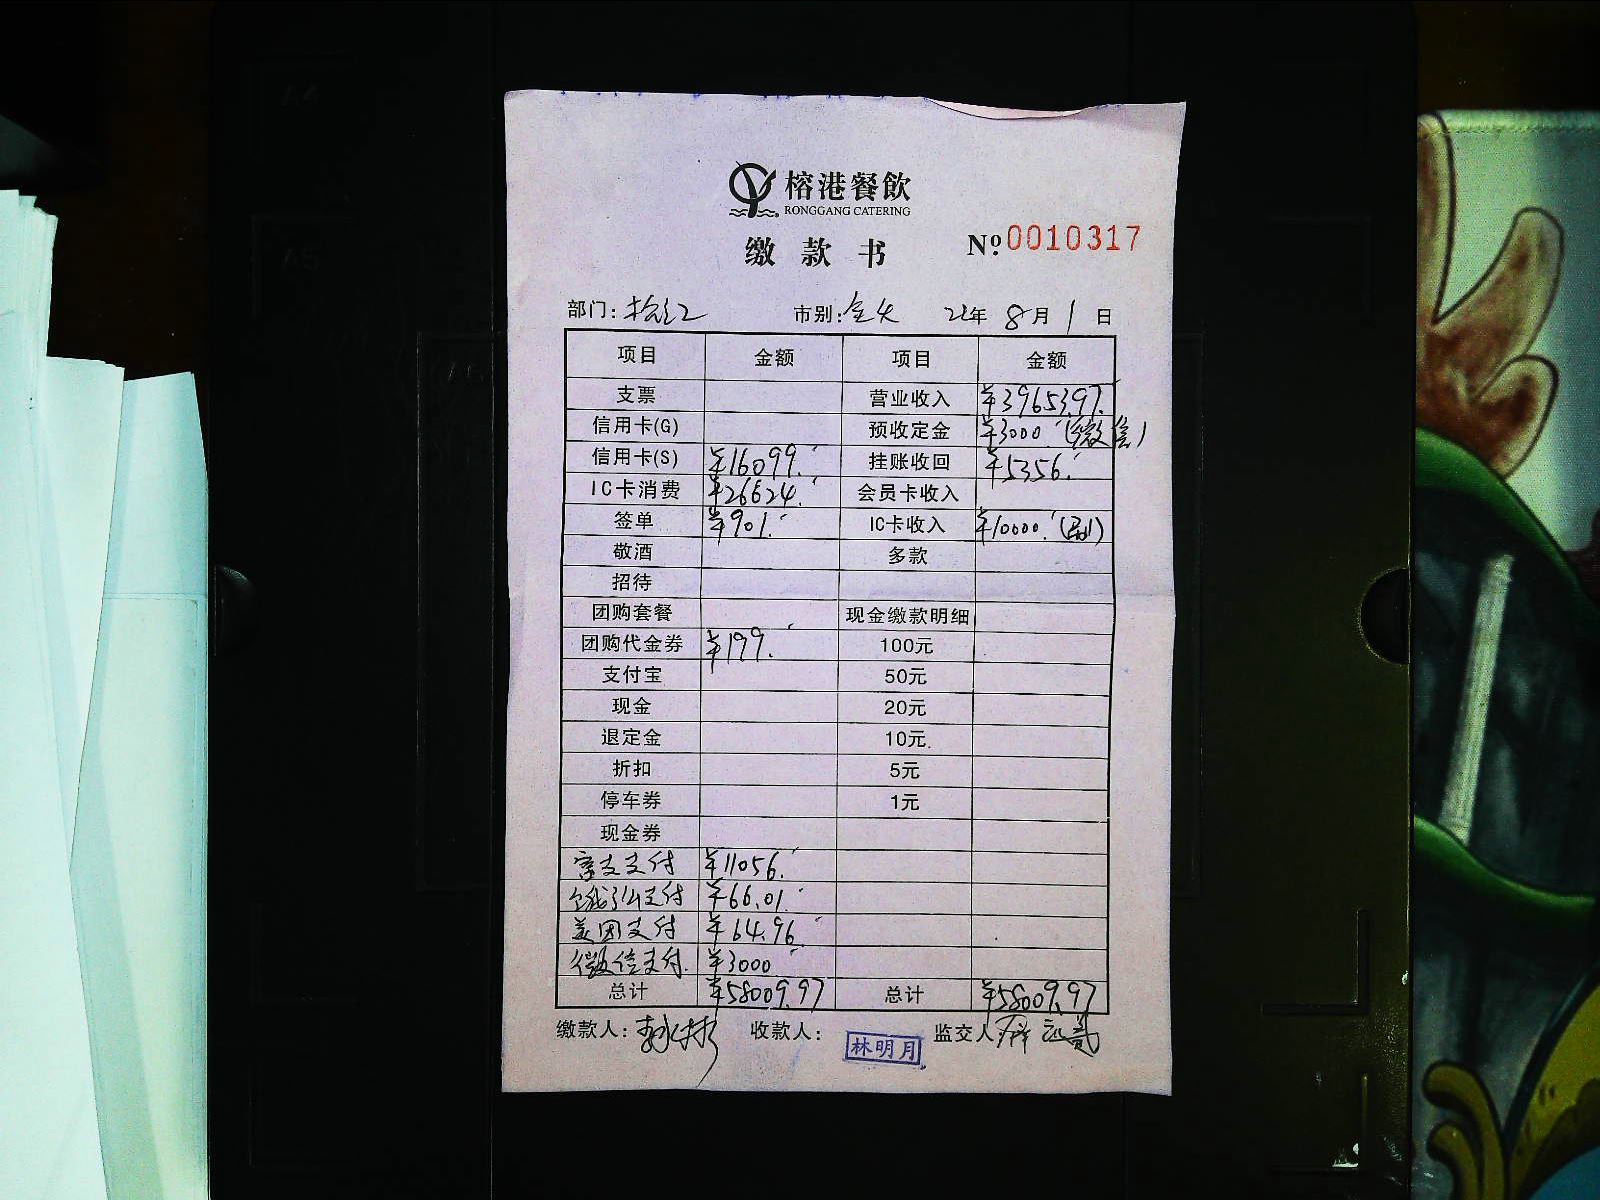 榕港餐飲
RONGGANG CATERING
缴款书 № 0010317
部门: 市别:全天 22年 8月 1日
项目 金额 项目 金额
支票 营业收入 ¥39653.97
信用卡(G) 预收定金 ¥3000.(微信)
信用卡(S) ¥16099. 挂账收回 ¥5356.
IC卡消费 ¥26624. 会员卡收入
签单 ¥901. IC卡收入 ¥10000.
敬酒 多款
招待
团购套餐 现金缴款明细
团购代金券 ¥199. 100元
支付宝 50元
现金 20元
退定金 10元
折扣 5元
停车券 1元
现金券
支付 ¥11056.
饿了么支付 ¥66.01
美团支付 ¥64.96
微信支付 ¥3000
总计 ¥58009.97 总计 ¥58009.97
缴款人: 收款人: 林明月 监交人
A4
A5
A6